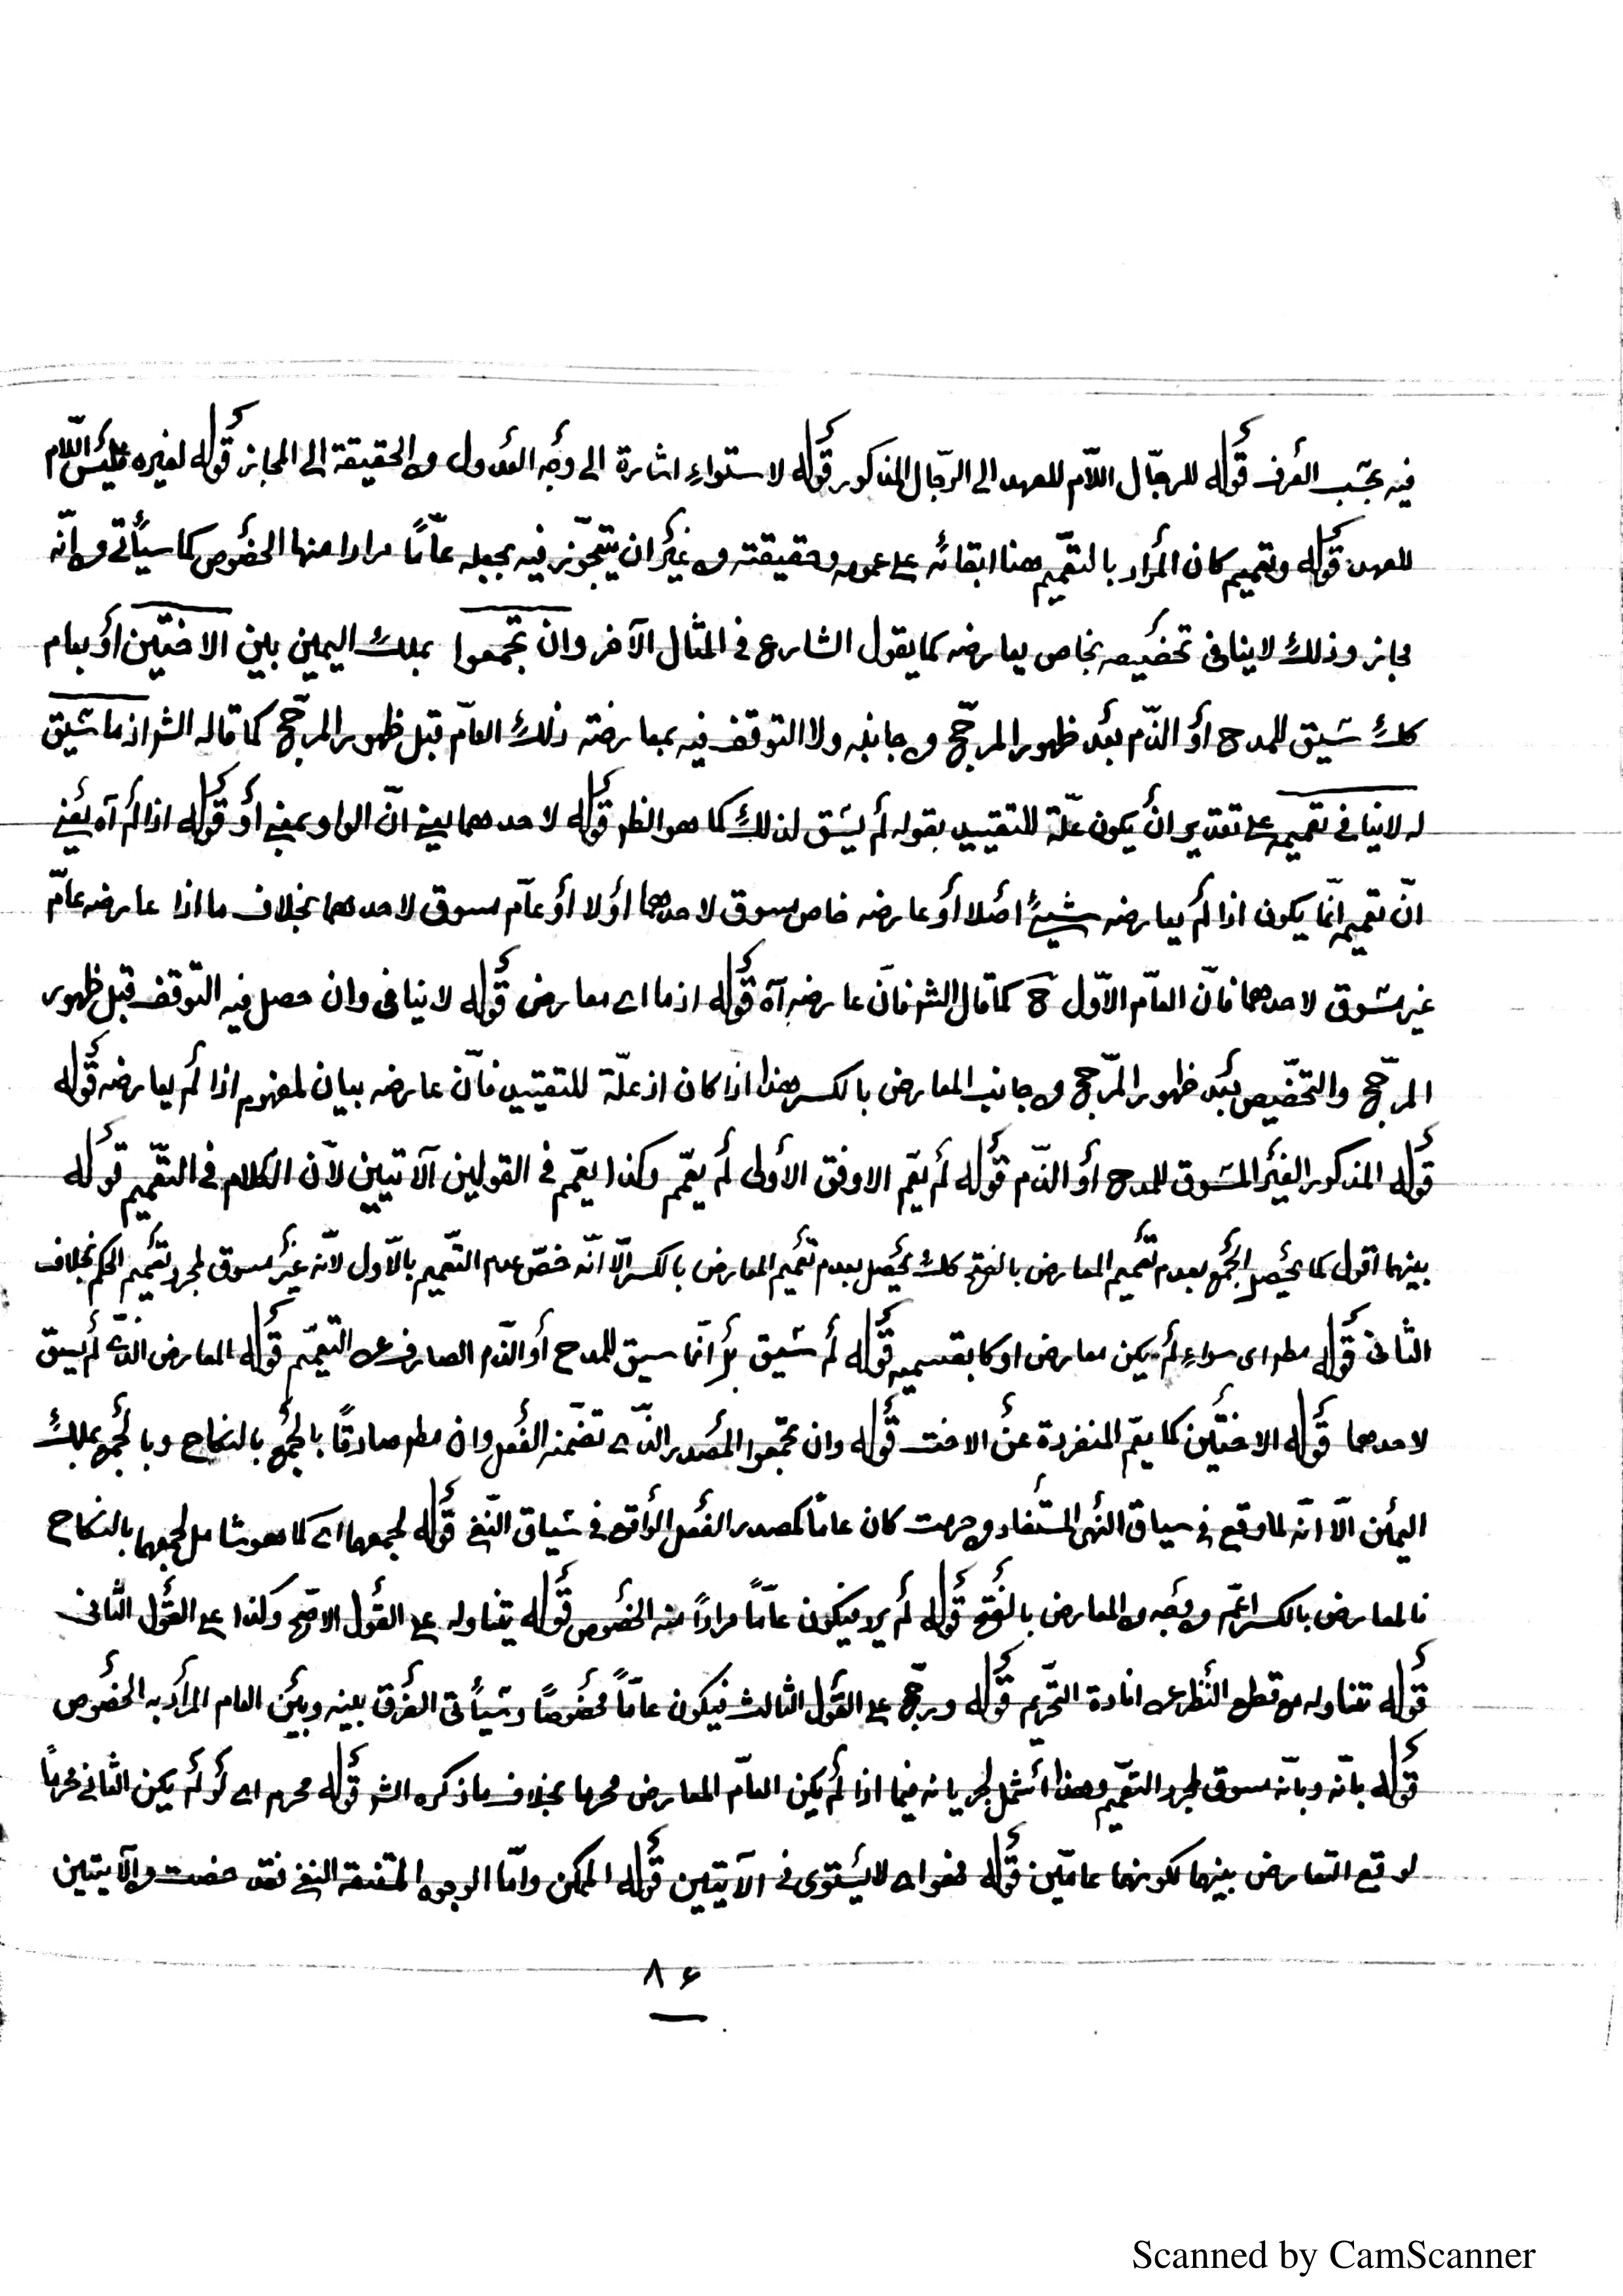 فيه بحسب العرف قوله للرجال اللام للعهد الى الرجال المذكور قوله لاستواء اشارة الى وجه العدول من الحقيقة الى المجاز قوله لغيره فليس اللام
للعهد قوله وتعميم كان المراد بالتعميم هنا ابقائه على عمومه وحقيقته من غير ان يتجوز فيه بجعله عاما مرادا منها الخصوص كما سيأتي من انه
مجاز وذلك لا ينافى تخصيصه بخاص يعارضه كما يقول الشارع في المثال الآخر وان تجمعوا بملك اليمين بين الاختين أو بعام
كك سيق للمدح أو الذم بعد ظهور المرجح من جانبه ولا التوقف فيه بمعارضته ذلك العام قبل ظهور المرجح كما قاله الشر اذ ما سيق
له لا ينافى تعميمه على تقدير ان يكون علة للتقييد بقوله لم يسق لذلك كما هو الظر قوله لاحدهما يعنى ان الواو بمعنى أو قوله اذا لم آه يعنى
ان تعميمه انما يكون اذا لم يعارضه شيئ اصلا أو عارضه خاص مسوق لاحدهما أو لا أو عام مسوق لاحدهما بخلاف ما اذا عارضه عام
غير مسوق لاحدهما فان العام الاول ح كما قال الشر فان عارضه آه قوله اذ ما اى معارض قوله لا ينافى وان حصل فيه التوقف قبل ظهور
المرجح والتخصيص بعد ظهور المرجح من جانب المعارض بالكسر هذا اذا كان اذ علة للتقييد فان عارضه بيان لمفهوم اذا لم يعارضه قوله
قوله المذكور الغير المسوق للمدح أو الذم قوله لم يعم الاوفق الأولى لم يعمم وكذا يعمم في القولين الآتيين لان الكلام في التعميم قوله
بينهما اقول كما يحصل الجمع بعدم تعميم المعارض بالفتح كك يحصل بعدم تعميم المعارض بالكسر الا انه خص عدم التعميم بالاول لانه غير مسوق لمجرد تعميم الحكم بخلاف
الثانى قوله مطر اى سواء لم يكن معارض او كا بقسميه قوله لم سيق بل انما سيق للمدح أو الذم الصارف عن التعميم قوله المعارض الذى لم يسق
لاحدهما قوله الاختين كما يعم المنفردة عن الاخت قوله وان تجمعوا المصدر الذى تضمنه الفعل وان مطر صادقا بالجمع بالنكاح وبالجمع بملك
اليمين الا انه لما وقع في سياق النهى المستفاد من حرمت كان عاما كمصدر الفعل الواقع في سياق النفى قوله لجمعهما اى كما هو شامل لجمعهما بالنكاح
فالمعارض بالكسر اعم من وجه من المعارض بالفتح قوله لم يرد فيكون عاما مرادا منه الخصوص قوله يتناوله على القول الاصح وكذا على القول الثانى
قوله تناوله مع قطع النظر عن افادة التحريم قوله ورجح على القول الثالث فيكون عاما مخصوصا وسيأتى الفرق بينه وبين العام المراد به الخصوص
قوله بانه وبانه مسوق لمجرد التعميم وهذا اشمل لجريانه فيما اذا لم يكن العام المعارض محرما بخلاف ما ذكره الشر قوله محرم اى لو لم يكن الثانى محرما
لوقع التعارض بينهما لكونهما عامين قوله فهو اى لا يستوى في الآيتين قوله الممكن واما الوجوه الممتنعة النفى فقد خصت من الآيتين
٨۶
Scanned by CamScanner